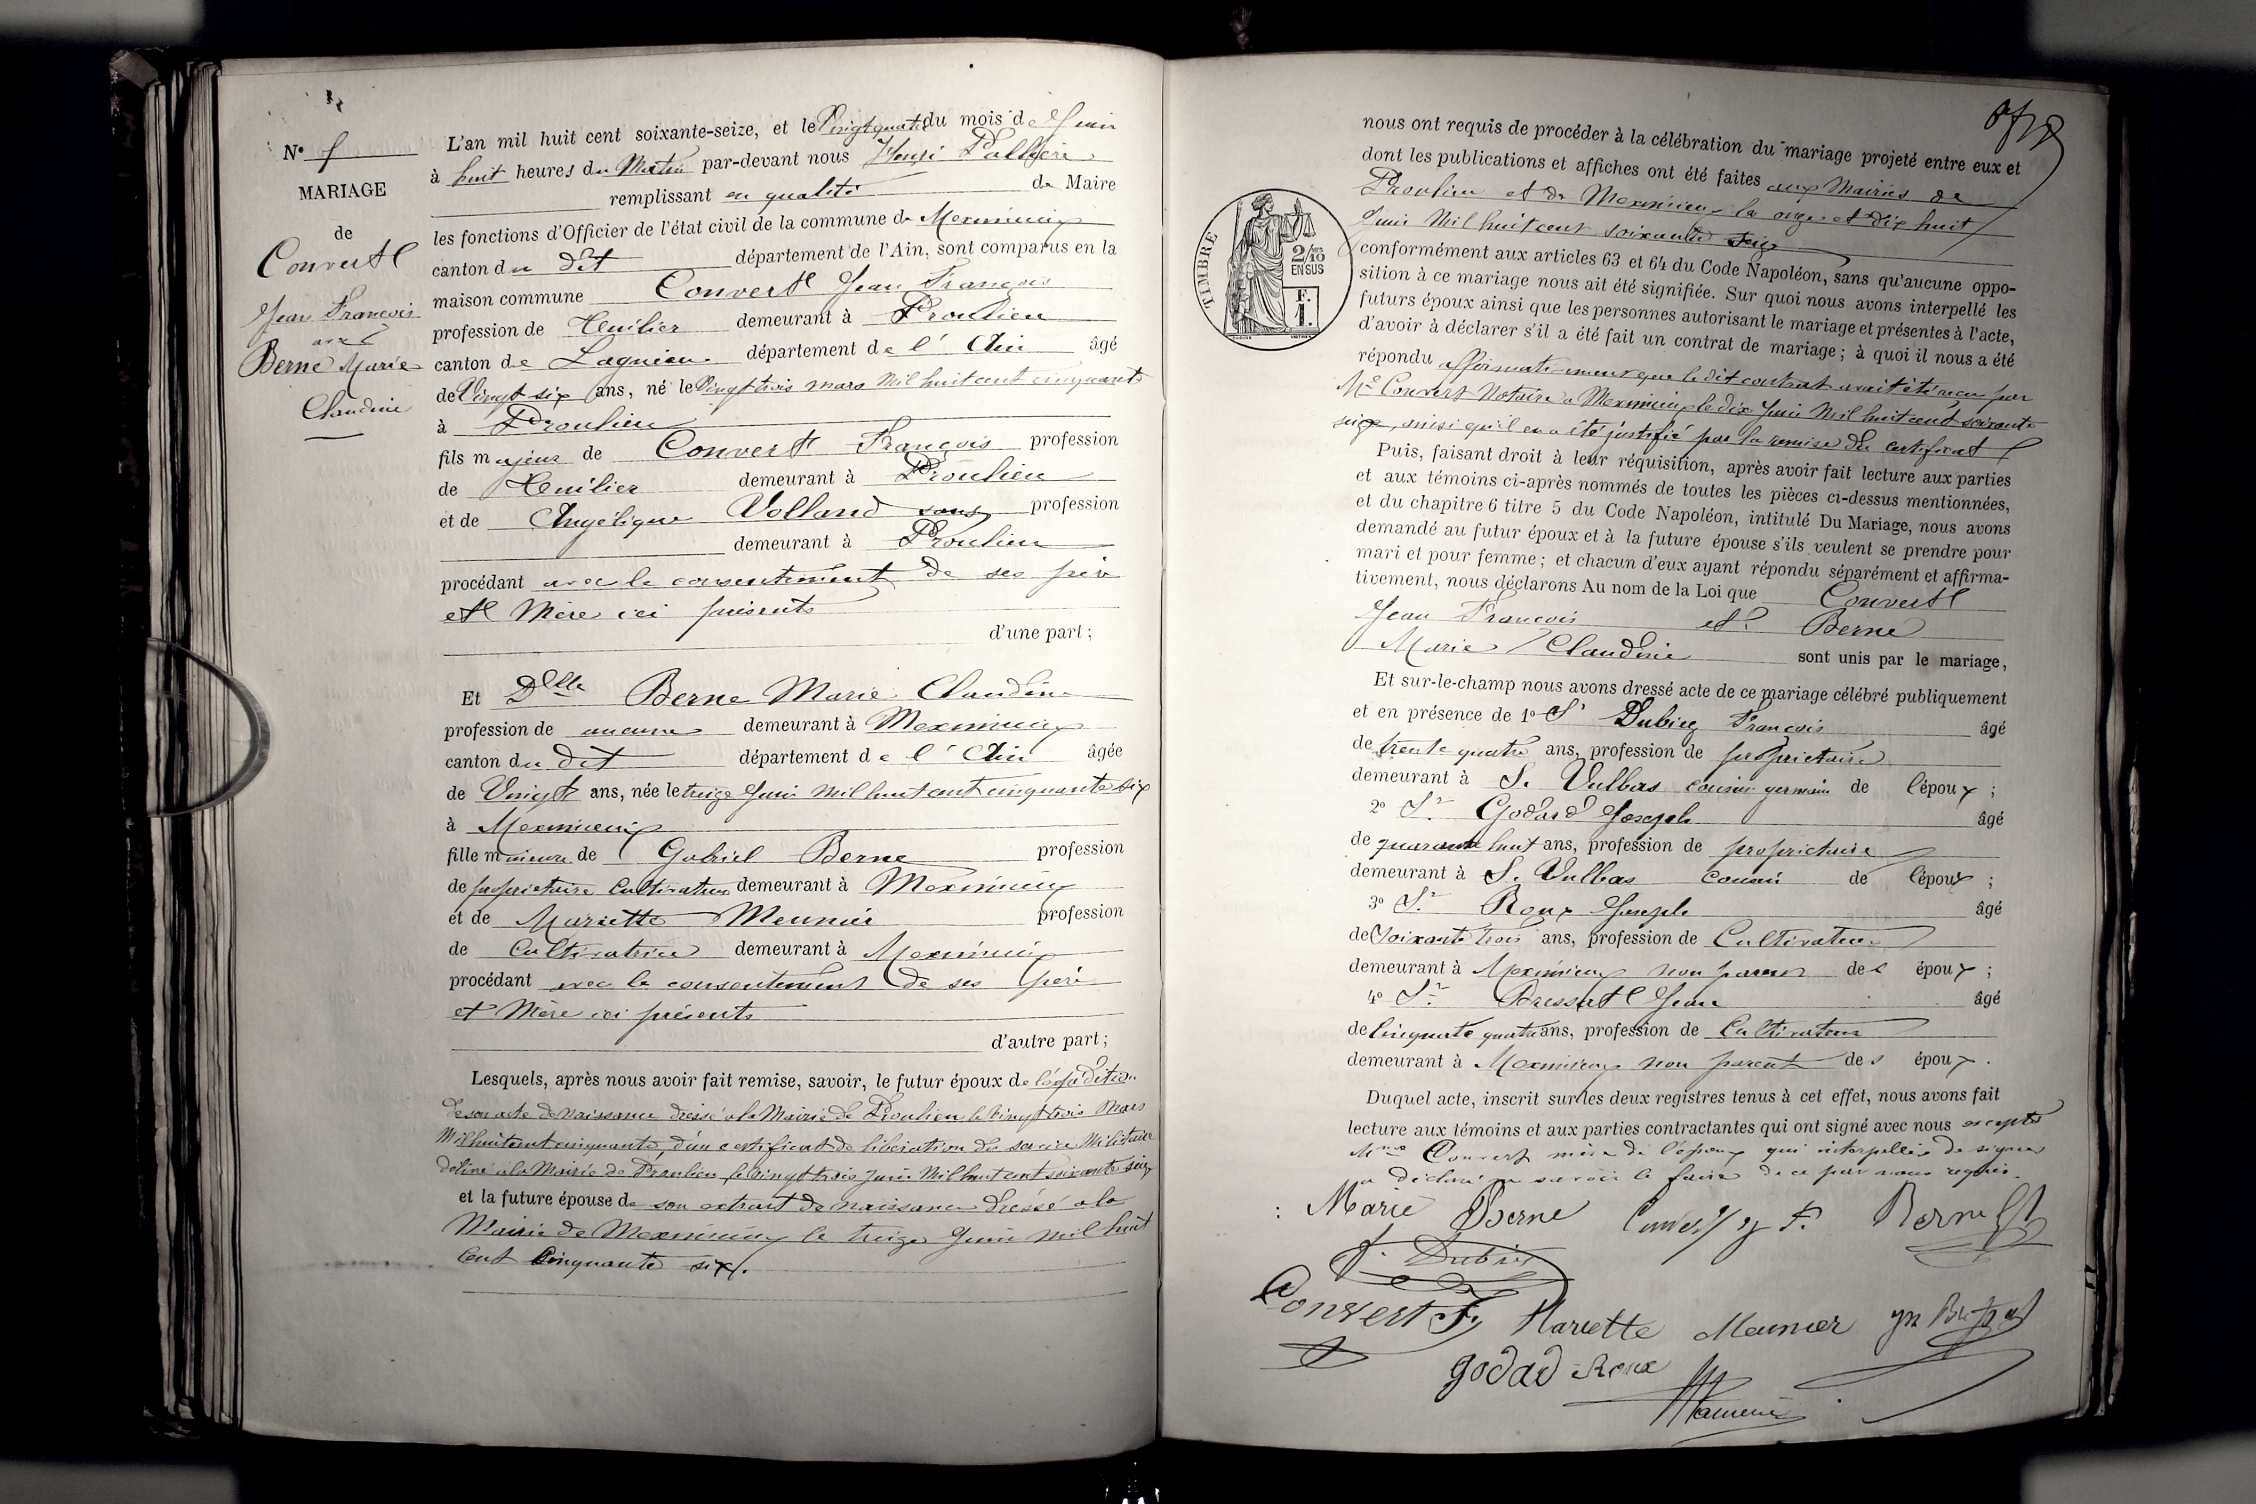 N° 
MARIAGE
de
Convert
Jean François
avec
Berne Marie
Claudine
L'an mil huit cent soixante-seize, et le Vingt quatre du mois de Juin
à huit heures du Matin par-devant nous Henri
remplissant en qualité de Maire
les fonctions d'Officier de l'état civil de la commune de Meximieux
canton du dit département de l'Ain, sont comparus en la
maison commune Convert Jean François
profession de Tuilier demeurant à Proulieu
canton de Lagnieu département de l'Ain âgé
de Vingt six ans, né le Vingt trois mars Mil huit cent cinquante
à Proulieu
fils majeur de Convert François profession
de Tuilier demeurant à Proulieu
et de Angélique Volland sans profession
demeurant à Proulieu
procédant avec le consentement de ses père
et Mère ici présents
d'une part;
Et Dlle Berne Marie Claudine
profession de aucune demeurant à Meximieux
canton du dit département de l'Ain âgée
de Vingt ans, née le treize Juin Mil huit cent cinquante six
à Meximieux
fille mineure de Gabriel Berne profession
de propriétaire Cultivateur demeurant à Meximieux
et de Mariette Meunier profession
de Cultivatrice demeurant à Meximieux
procédant avec le consentement de ses père
et Mère ici présents
d'autre part;
Lesquels, après nous avoir fait remise, savoir, le futur époux de l'expédition
de son acte de naissance dressé à la Mairie de Proulieu le Vingt trois Mars
Mil huit cent cinquante, d'un certificat de libération du service Militaire
délivré à la Mairie de Proulieu le vingt trois Juin Mil huit cent soixante seize
et la future épouse de son extrait de naissance dressé à la
Mairie de Meximieux le treize Juin mil huit
Cent Cinquante six.
nous ont requis de procéder à la célébration du mariage projeté entre eux et
dont les publications et affiches ont été faites aux Mairies de
Proulieu et de Meximieux le onze et dix huit
Juin Mil huit cent soixante seize
TIMBRE
2/10
EN SUS
F.
1.
conformément aux articles 63 et 64 du Code Napoléon, sans qu'aucune oppo-
sition à ce mariage nous ait été signifiée. Sur quoi nous avons interpellé les
futurs époux ainsi que les personnes autorisant le mariage et présentes à l'acte,
d'avoir à déclarer s'il a été fait un contrat de mariage; à quoi il nous a été
répondu affirmativement que le dit contrat avait été reçu par
Me Convert Notaire à Meximieux le dix Juin Mil huit cent soixante
seize, ainsi qu'il en a été justifié par la remise du certificat
Puis, faisant droit à leur réquisition, après avoir fait lecture aux parties
et aux témoins ci-après nommés de toutes les pièces ci-dessus mentionnées,
et du chapitre 6 titre 5 du Code Napoléon, intitulé Du Mariage, nous avons
demandé au futur époux et à la future épouse s'ils veulent se prendre pour
mari et pour femme; et chacun d'eux ayant répondu séparément et affirma-
tivement, nous déclarons Au nom de la Loi que Convert
Jean François et Berne
Marie Claudine sont unis par le mariage,
Et sur-le-champ nous avons dressé acte de ce mariage célébré publiquement
et en présence de 1° Sr Dubiez François âgé
de trente quatre ans, profession de propriétaire
demeurant à St Vulbas cousin germain de l'époux;
2° Sr Godard Joseph âgé
de quarante huit ans, profession de propriétaire
demeurant à St Vulbas cousin de l'époux;
3° Sr Roux Joseph âgé
de Soixante trois ans, profession de Cultivateur
demeurant à Meximieux non parent des époux;
4° Sr Bressat Jean âgé
de Cinquante quatre ans, profession de Cultivateur
demeurant à Meximieux non parent des époux.
Duquel acte, inscrit sur les deux registres tenus à cet effet, nous avons fait
lecture aux témoins et aux parties contractantes qui ont signé avec nous excepté
Me Convert mère de l'époux qui interpellée de signer
a déclaré ne savoir le faire de ce par nous requis.
Marie Berne F. Berne
F. Dubiez
Convert F. Mariette Meunier
Godad Roux